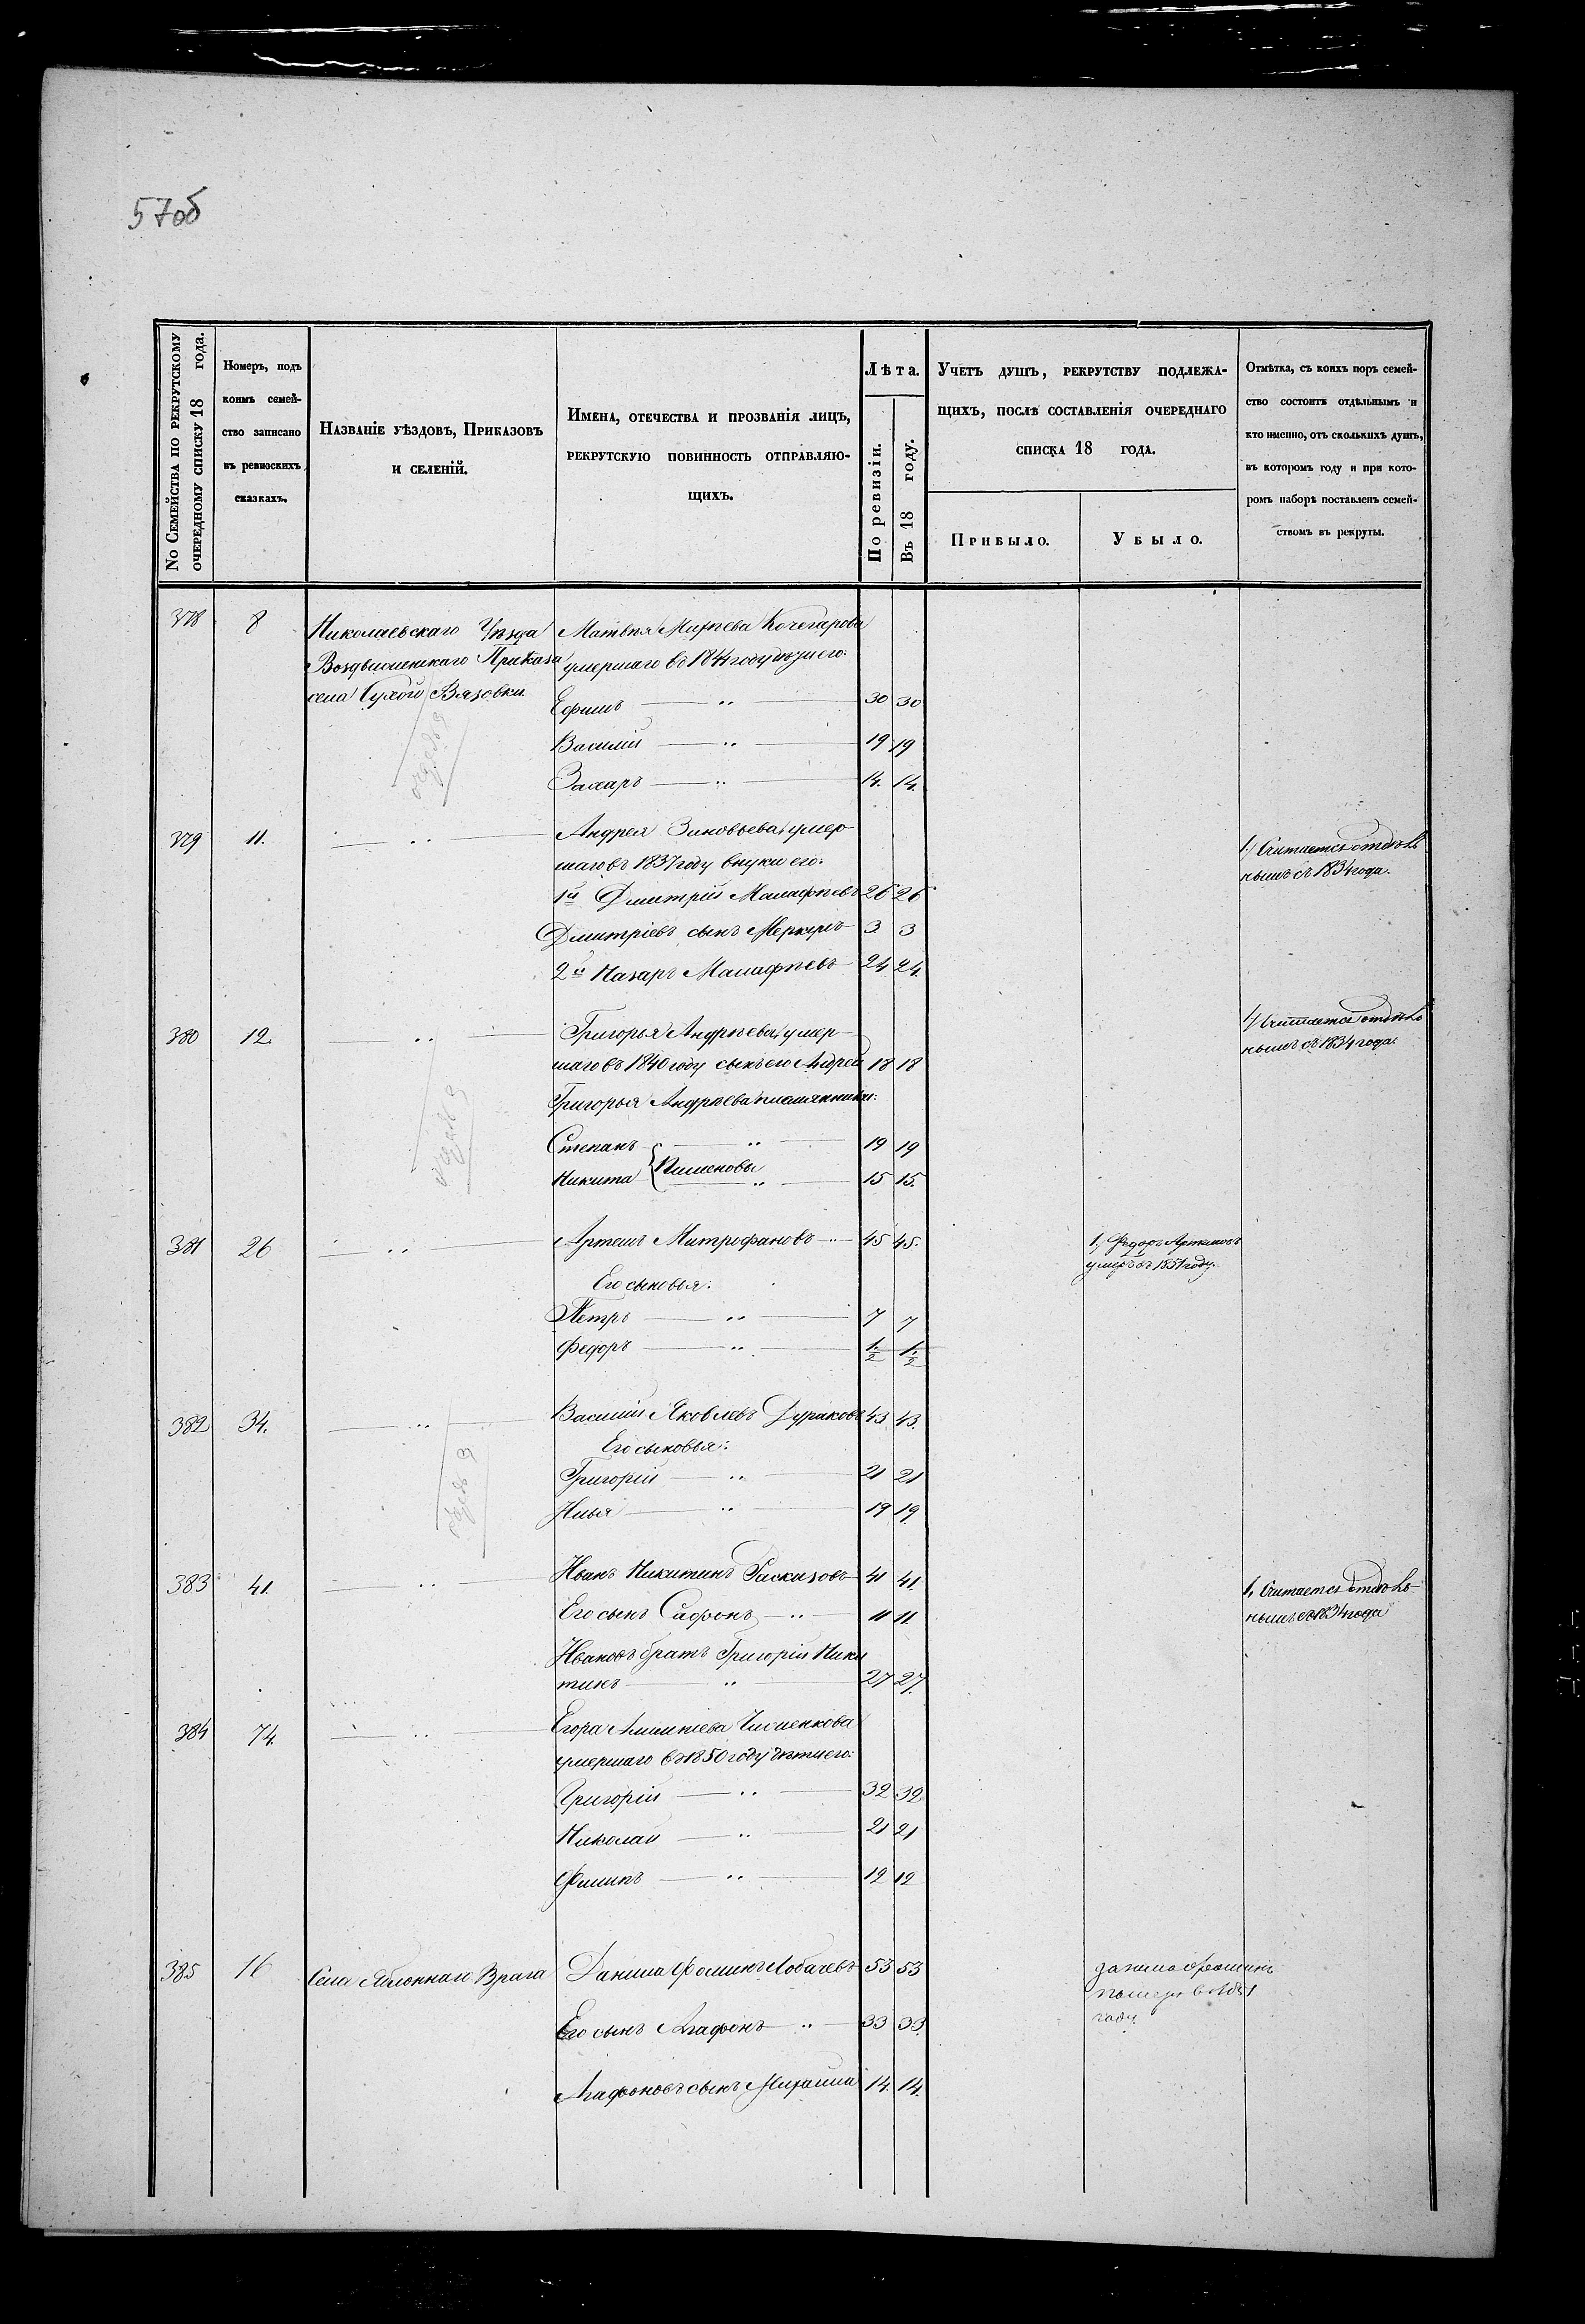 57об
№ Семейства по рекрутскому очередному списку 18 года.
Номеръ, подъ коимъ семейство записано въ ревизскихъ сказкахъ.
Названіе уѣздовъ, Приказовъ и селеній.
Имена, отечества и прозванія лицъ, рекрутскую повинность отправляющихъ.
Лѣта.
По ревизіи.
Въ 18 году.
Учетъ душъ, рекрутству подлежащихъ, послѣ составленія очереднаго списка 18 года.
Прибыло.
Убыло.
Отмѣтка, съ коихъ поръ семейство состоитъ отдѣльнымъ и кто именно, отъ сколькихъ душъ, въ которомъ году и при которомъ наборѣ поставленъ семействомъ въ рекруты.
378 8 Николаевскаго Уѣзда Матвѣя Михѣева Кочегарова
Воздвиженскаго Приказа умершаго въ 1844 году дѣти его:
села Сухой Вязовки Ефимъ — „ — 30 30
Василій — „ — 19 19
Захаръ — „ — 14. 14.
379 11. — „ — Андрея Зиновьева умер-
шаго въ 1837 году внуки его:
1й Дмитрій Малафѣевъ 26 26
Дмитріевъ сынъ Меркулъ 3 3
2й Назаръ Малафѣевъ 24 24.
1) Считается отдѣль-
нымъ съ 1834 года.
380 12. — „ — Григорья Андрѣева умер-
шаго въ 1840 году сынъ его Андрей 18 18
Григорья Андрѣева племянники:
Степанъ — „ — 19 19
Никита { Пименовы — „ — 15 15.
1) Считается отдѣль-
нымъ съ 1834 года.
381 26 — „ — Артемъ Митрофановъ — „ 45 45.
Его сыновья:
Петръ — „ — 7 7
Федоръ — „ — 1/2 1/2
1) Федоръ Артемовъ
умеръ въ 1851 году.
382 34. — „ — Василій Яковлевъ Дураковъ 43 43.
Его сыновья:
Григорій — „ — 21 21
Илья — „ — 19 19.
383 41. — „ — Иванъ Никитинъ 41 41
Его сынъ Сафонъ — „ — 11 11.
Ивановъ братъ Григорій Ники
тинъ — „ — 27 27.
1, Считается отдѣль-
нымъ съ 1834 года
384 74. — „ — Егора
умершаго въ 1850 году дѣти его:
Григорій — „ — 32 32
Николай — „ — 21 21
Филипъ — „ — 12 12
385 16 Села Яблоннаго Врага Данила Фоминъ Лобачевъ 53 53
Его сынъ Агафонъ — „ — 33 33.
Агафоновъ сынъ Михайла 14. 14.
Данило Фоминъ
году